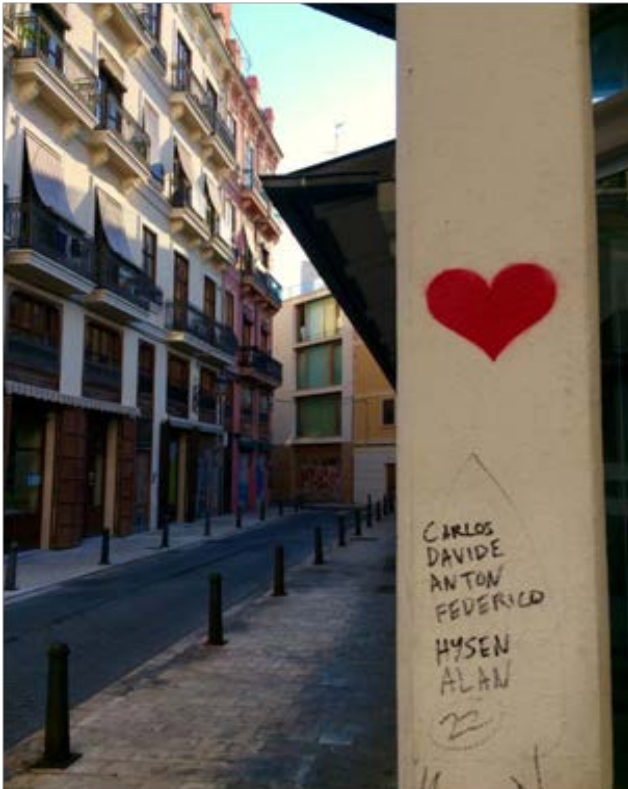 CARLOS
DAVIDE
ANTON
FEDERICO
HYSEN
ALAN
22